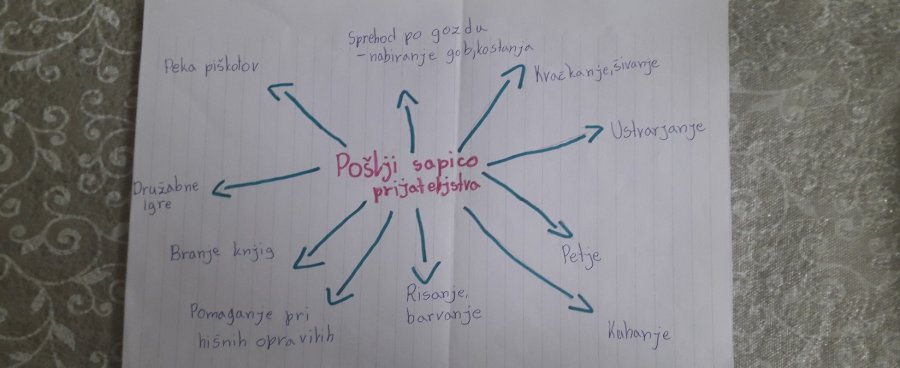 Sprehod po gozdu
- nabiranje gob, kostanja
Peka piškotov
Kvačkanje, šivanje
Ustvarjanje
Pošlji sapico
prijateljstva
Družabne
igre
Branje knjig
Petje
Risanje,
barvanje
Pomaganje pri
hišnih opravilih
Kuhanje